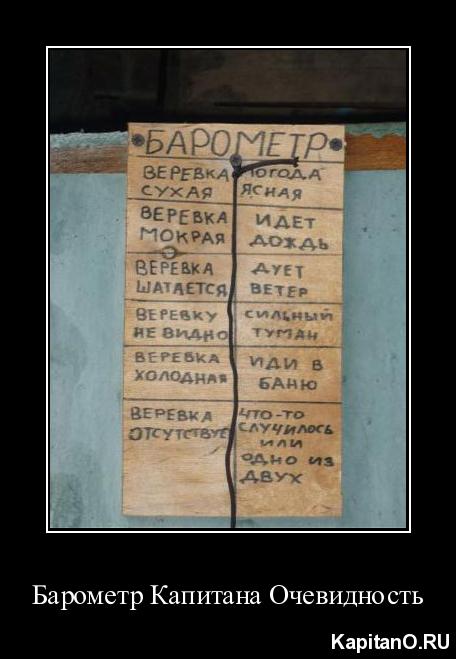 БАРОМЕТР
ВЕРЕВКА ПОГОДА
СУХАЯ ЯСНАЯ
ВЕРЕВКА ИДЕТ
МОКРАЯ ДОЖДЬ
ВЕРЕВКА ДУЕТ
ШАТАЕТСЯ ВЕТЕР
ВЕРЕВКУ СИЛЬНЫЙ
НЕ ВИДНО ТУМАН
ВЕРЕВКА ИДИ В
ХОЛОДНАЯ БАНЮ
ВЕРЕВКА ЧТО-ТО
ОТСУТСТВУЕТ СЛУЧИЛОСЬ
ИЛИ
ОДНО ИЗ
ДВУХ
Барометр Капитана Очевидность
KapitanO.RU